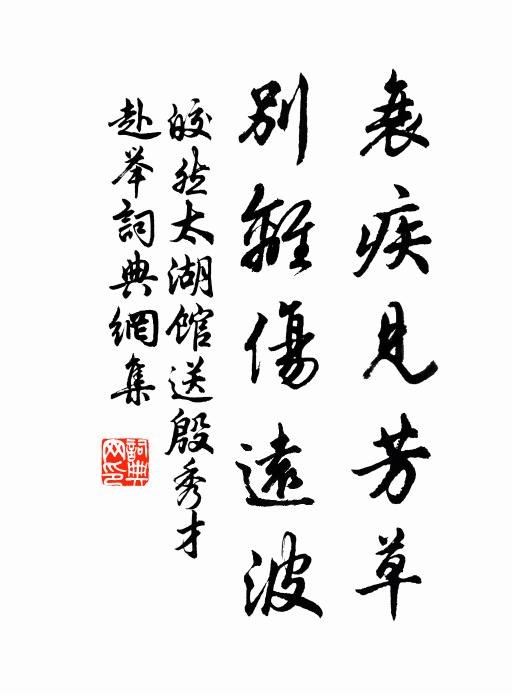 衰疾見芳草
別離傷遠波
皎然太湖館送殷秀才
赴举詞典網集
詞典网印